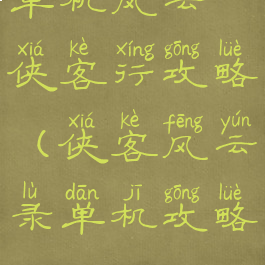 单机风云
xiá kè xíng gōng lüè
侠客行攻略
xiá kè fēng yún
（侠客风云
lù dān jī gōng lüè
录单机攻略